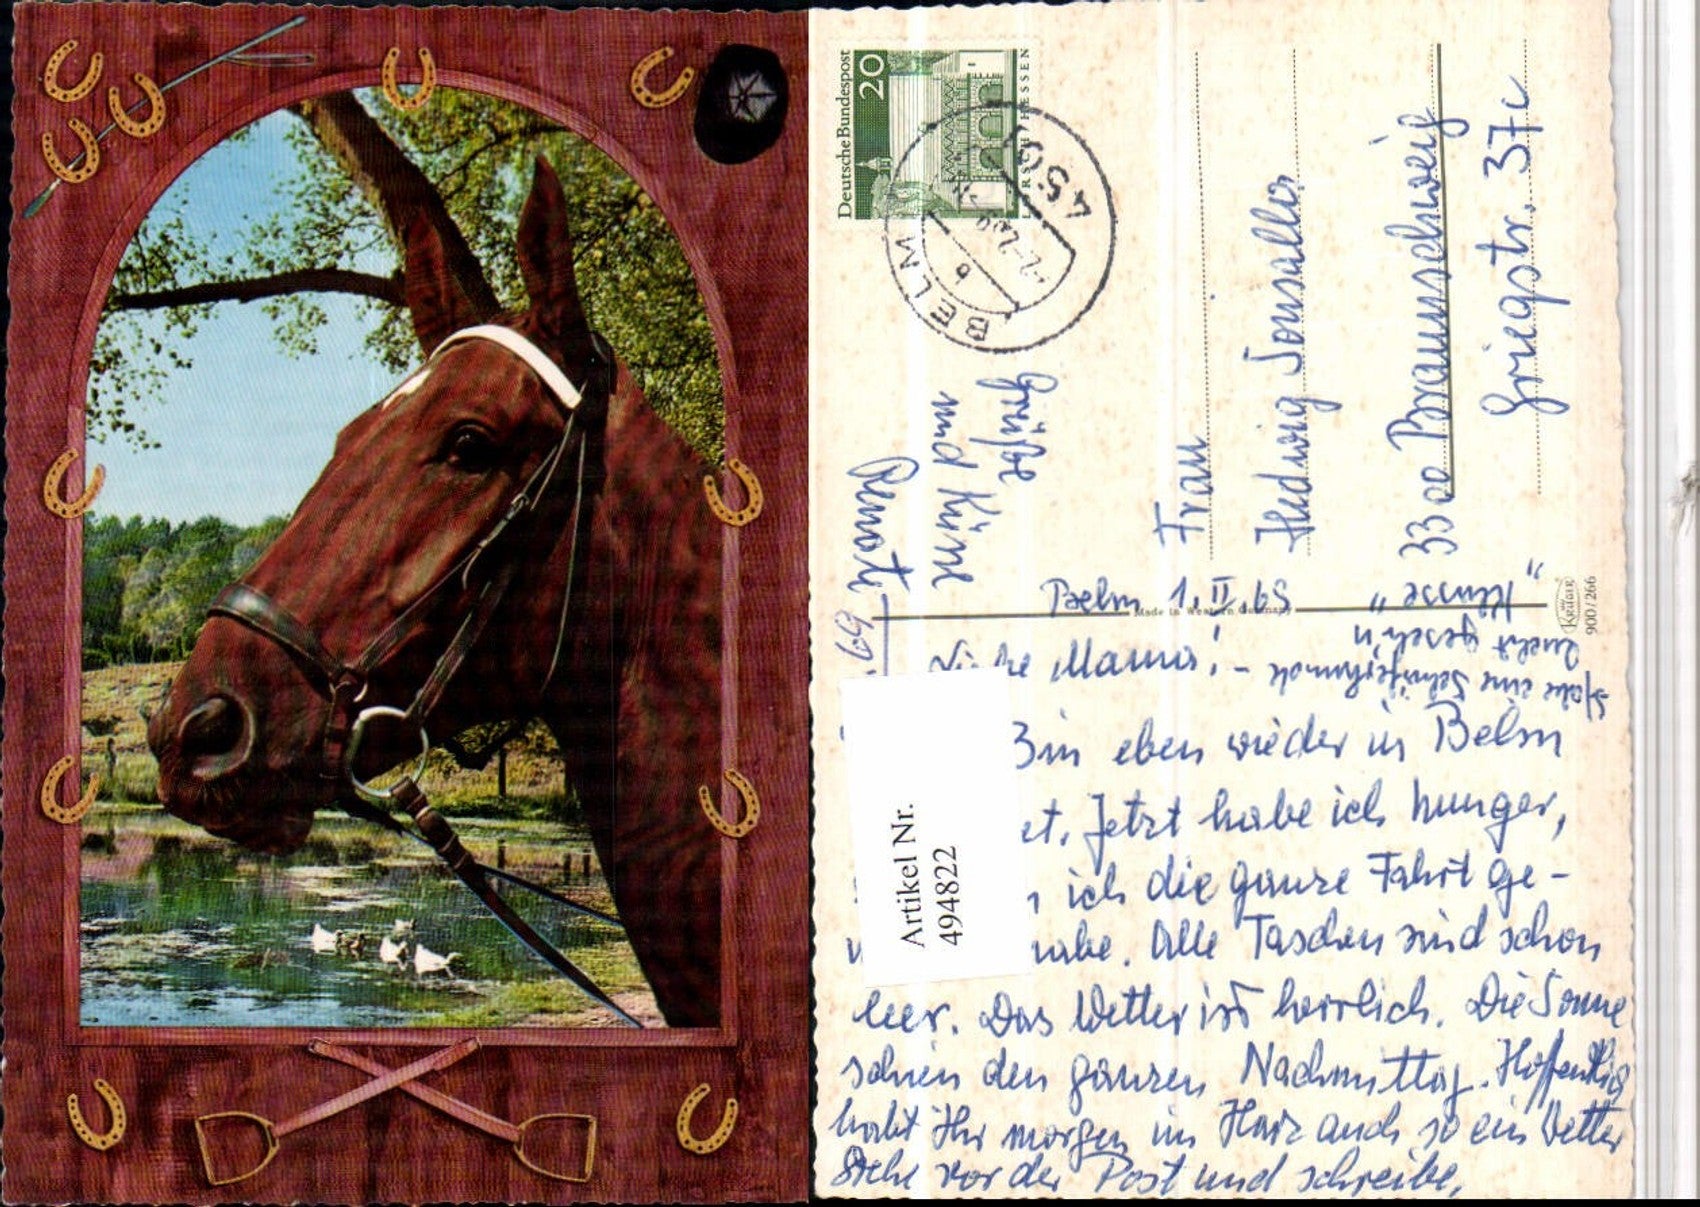 Deutsche Bundespost
20
LORSCH HESSEN
4501
BELM
b
-2.-2.69
Belm 1. II. 69
Liebe Mama! -
Bin eben wieder in Belm
et. Jetzt habe ich Hunger,
ich die ganze Fahrt ge-
habe. Alle Taschen sind schon
leer. Das Wetter ist herrlich. Die Sonne
schien den ganzen Nachmittag. Hoffentlich
habt Ihr morgen im Harz auch so ein Wetter
Stehe vor der Post und schreibe.
Habe eine Schäferhunde
"Klasse"
und Küsse
Grüße
Frau
Hedwig
3300 Braunschweig
Griegstr. 37c
Made in Western Germany
Krüger
900/266
Artikel Nr.
494822